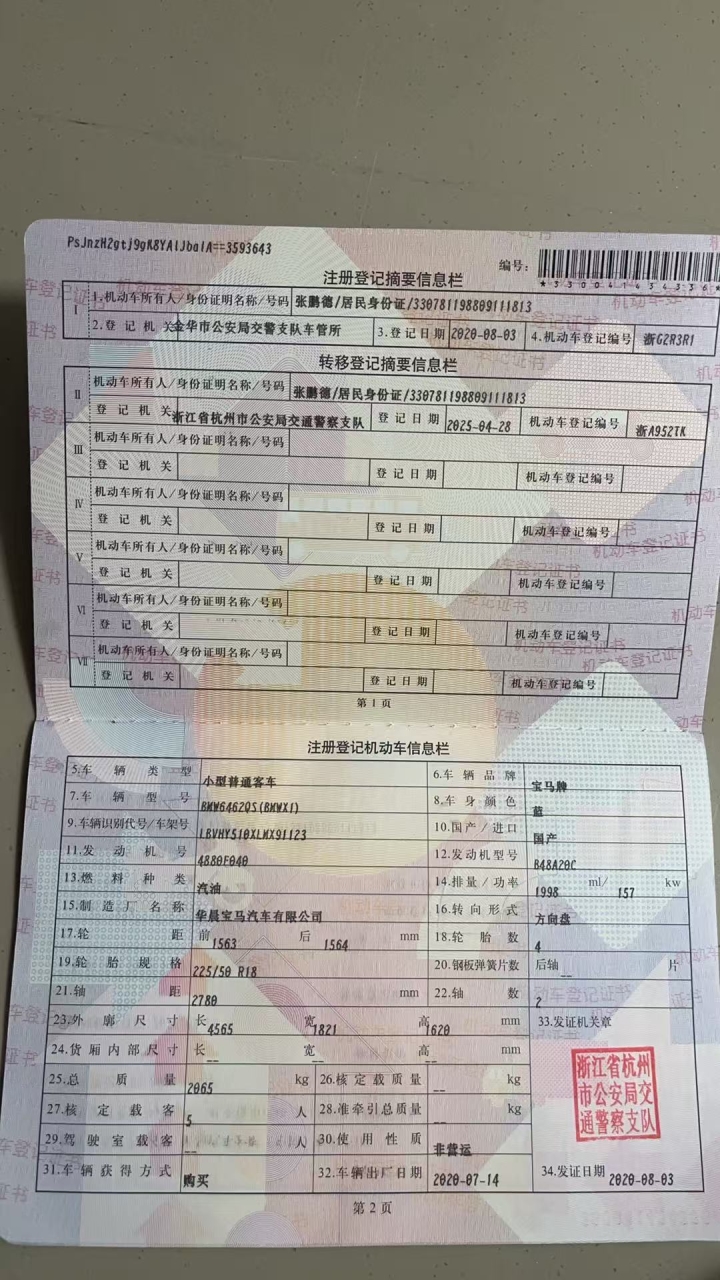 PsJnzH2gtj9gK8YAlJbalA==3593643
编号：
*330041434336*
注册登记摘要信息栏
I 1.机动车所有人/身份证明名称/号码 张鹏德/居民身份证/330781198809111813
2.登记机关 金华市公安局交警支队车管所 3.登记日期 2020-08-03 4.机动车登记编号 浙G2R3R1
转移登记摘要信息栏
II 机动车所有人/身份证明名称/号码 张鹏德/居民身份证/330781198809111813
登记机关 浙江省杭州市公安局交通警察支队 登记日期 2025-04-28 机动车登记编号 浙A952TK
III 机动车所有人/身份证明名称/号码
登记机关 登记日期 机动车登记编号
IV 机动车所有人/身份证明名称/号码
登记机关 登记日期 机动车登记编号
V 机动车所有人/身份证明名称/号码
登记机关 登记日期 机动车登记编号
VI 机动车所有人/身份证明名称/号码
登记机关 登记日期 机动车登记编号
VII 机动车所有人/身份证明名称/号码
登记机关 登记日期 机动车登记编号
第1页
注册登记机动车信息栏
5.车辆类型 小型普通客车 6.车辆品牌 宝马牌
7.车辆型号 BMW6462QS(BMWX1) 8.车身颜色 蓝
9.车辆识别代号/车架号 LBVHY510XLMX91123 10.国产/进口 国产
11.发动机号 4880F040 12.发动机型号 B48A20C
13.燃料种类 汽油 14.排量/功率 1998 ml/ 157 kw
15.制造厂名称 华晨宝马汽车有限公司 16.转向形式 方向盘
17.轮距 前 1563 后 1564 mm 18.轮胎数 4
19.轮胎规格 225/50 R18 20.钢板弹簧片数 后轴 -- 片
21.轴距 2780 mm 22.轴数 2
23.外廓尺寸 长 4565 宽 1821 高 1620 mm 33.发证机关章
24.货厢内部尺寸 长 -- 宽 -- 高 -- mm
25.总质量 2065 kg 26.核定载质量 -- kg
27.核定载客 5 人 28.准牵引总质量 -- kg
29.驾驶室载客 -- 人 30.使用性质 非营运
31.车辆获得方式 购买 32.车辆出厂日期 2020-07-14 34.发证日期 2020-08-03
浙江省杭州
市公安局交
通警察支队
第2页